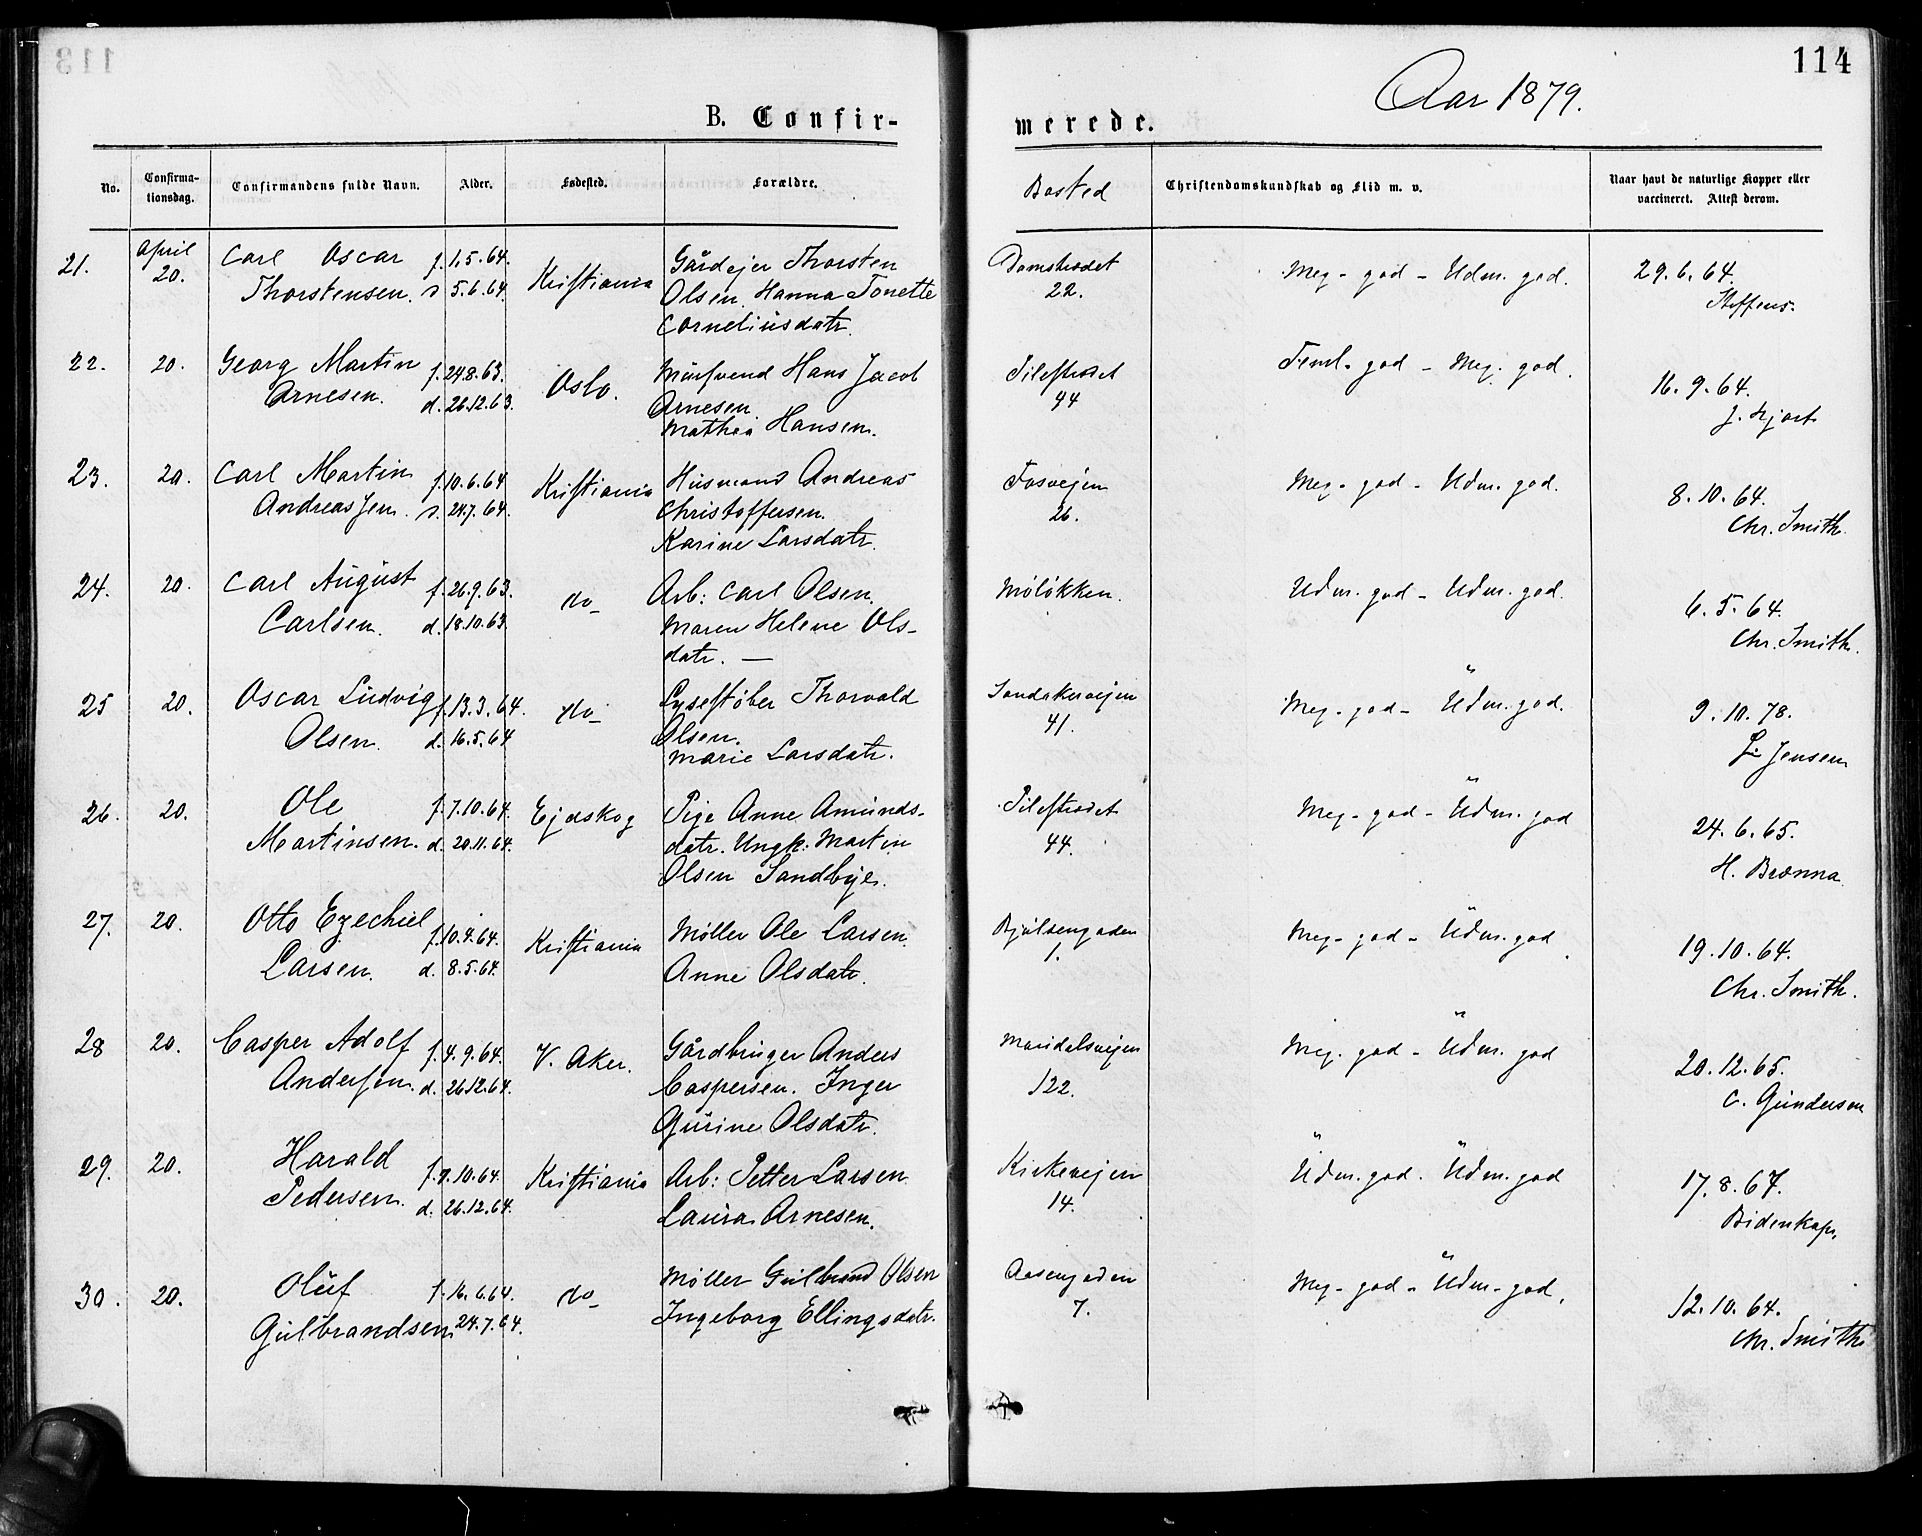 114
Aar 1879.
B. Confir-
merede.
No.
Confirma-
tionsdag.
Confirmandens fulde Navn.
Alder.
Fødested.
Forældre.
Bosted
Christendomskundskab og Flid m. v.
Naar havt de naturlige Kopper eller
vaccineret. Attest derom.
21. April 20. Carl Oscar f. 1.5.64. Kristiania Gårdejer Thorsten Damstredet Meg. god - Udm. god. 29.6.64.
Thorstensen. d. 5.6.64. Olsen. Hanna Tonette 22. Steffens.
Corneliusdatr.
22. 20. Georg Martin f. 24.8.63. Oslo. Mursvend Hans Jacob Pilestredet Teml. god - Meg. god. 16.9.64.
Arnesen. d. 26.12.63. Arnesen. 44 J. Hjort
Mathea Hansen.
23. 20. Carl Martin f. 10.6.64 Kristiania Husmand Andreas Fosvejen Meg. god - Udm. god. 8.10.64.
Andreassen. d. 24.7.64. Christoffersen. 26. Chr. Smith
Karine Larsdatr.
24. 20. Carl August f. 26.9.63. do Arb: Carl Olsen. Møløkken. Udm. god - Udm. god. 6.5.64.
Carlsen. d. 18.10.63. Maren Helene Ols- Chr. Smith.
datr. —
25 20. Oscar Ludvig f. 13.3.64. do Lysestøber Thorvald Sandakervejen Meg. god - Udm. god. 9.10.78.
Olsen. d. 16.5.64 Olsen. 41. Jensen
Marie Larsdatr.
26. 20. Ole f. 7.10.64. Ejdskog Pige Anne Amunds- Pilestredet Meg. god - Udm. god 24.6.65.
Martinsen. d. 20.11.64. datr. Ungk: Martin 44. H. Brænna
Olsen Sandbye.
27. 20. Otto Ezechiel f. 10.4.64. Kristiania Møller Ole Larsen. Bjølsengaden Meg. god - Udm. god. 19.10.64.
Larsen. d. 8.5.64. Anne Olsdatr. 1. Chr. Smith.
28 20. Casper Adolf f. 4.9.64. V. Aker. Gårdbruger Anders Maridalsvejen Meg. god - Udm. god 20.12.65.
Andersen. d. 26.12.64. Caspersen. Inger 122. C. Gundersen
Gurine Olsdatr.
29. 20. Harald f. 9.10.64. Kristiania Arb: Petter Larsen. Kirkevejen Udm. god. Udm. god 17.8.67.
Pedersen. d. 26.12.64. Laura Arnesen. 14. Bidenkap.
30. 20. Oluf f. 16.6.64. do Møller Gulbrand Olsen Aasengaden Meg. god - Udm. god. 12.10.64.
Gulbrandsen. 24.7.64. Ingeborg Ellingsdatr. 7. Chr. Smith